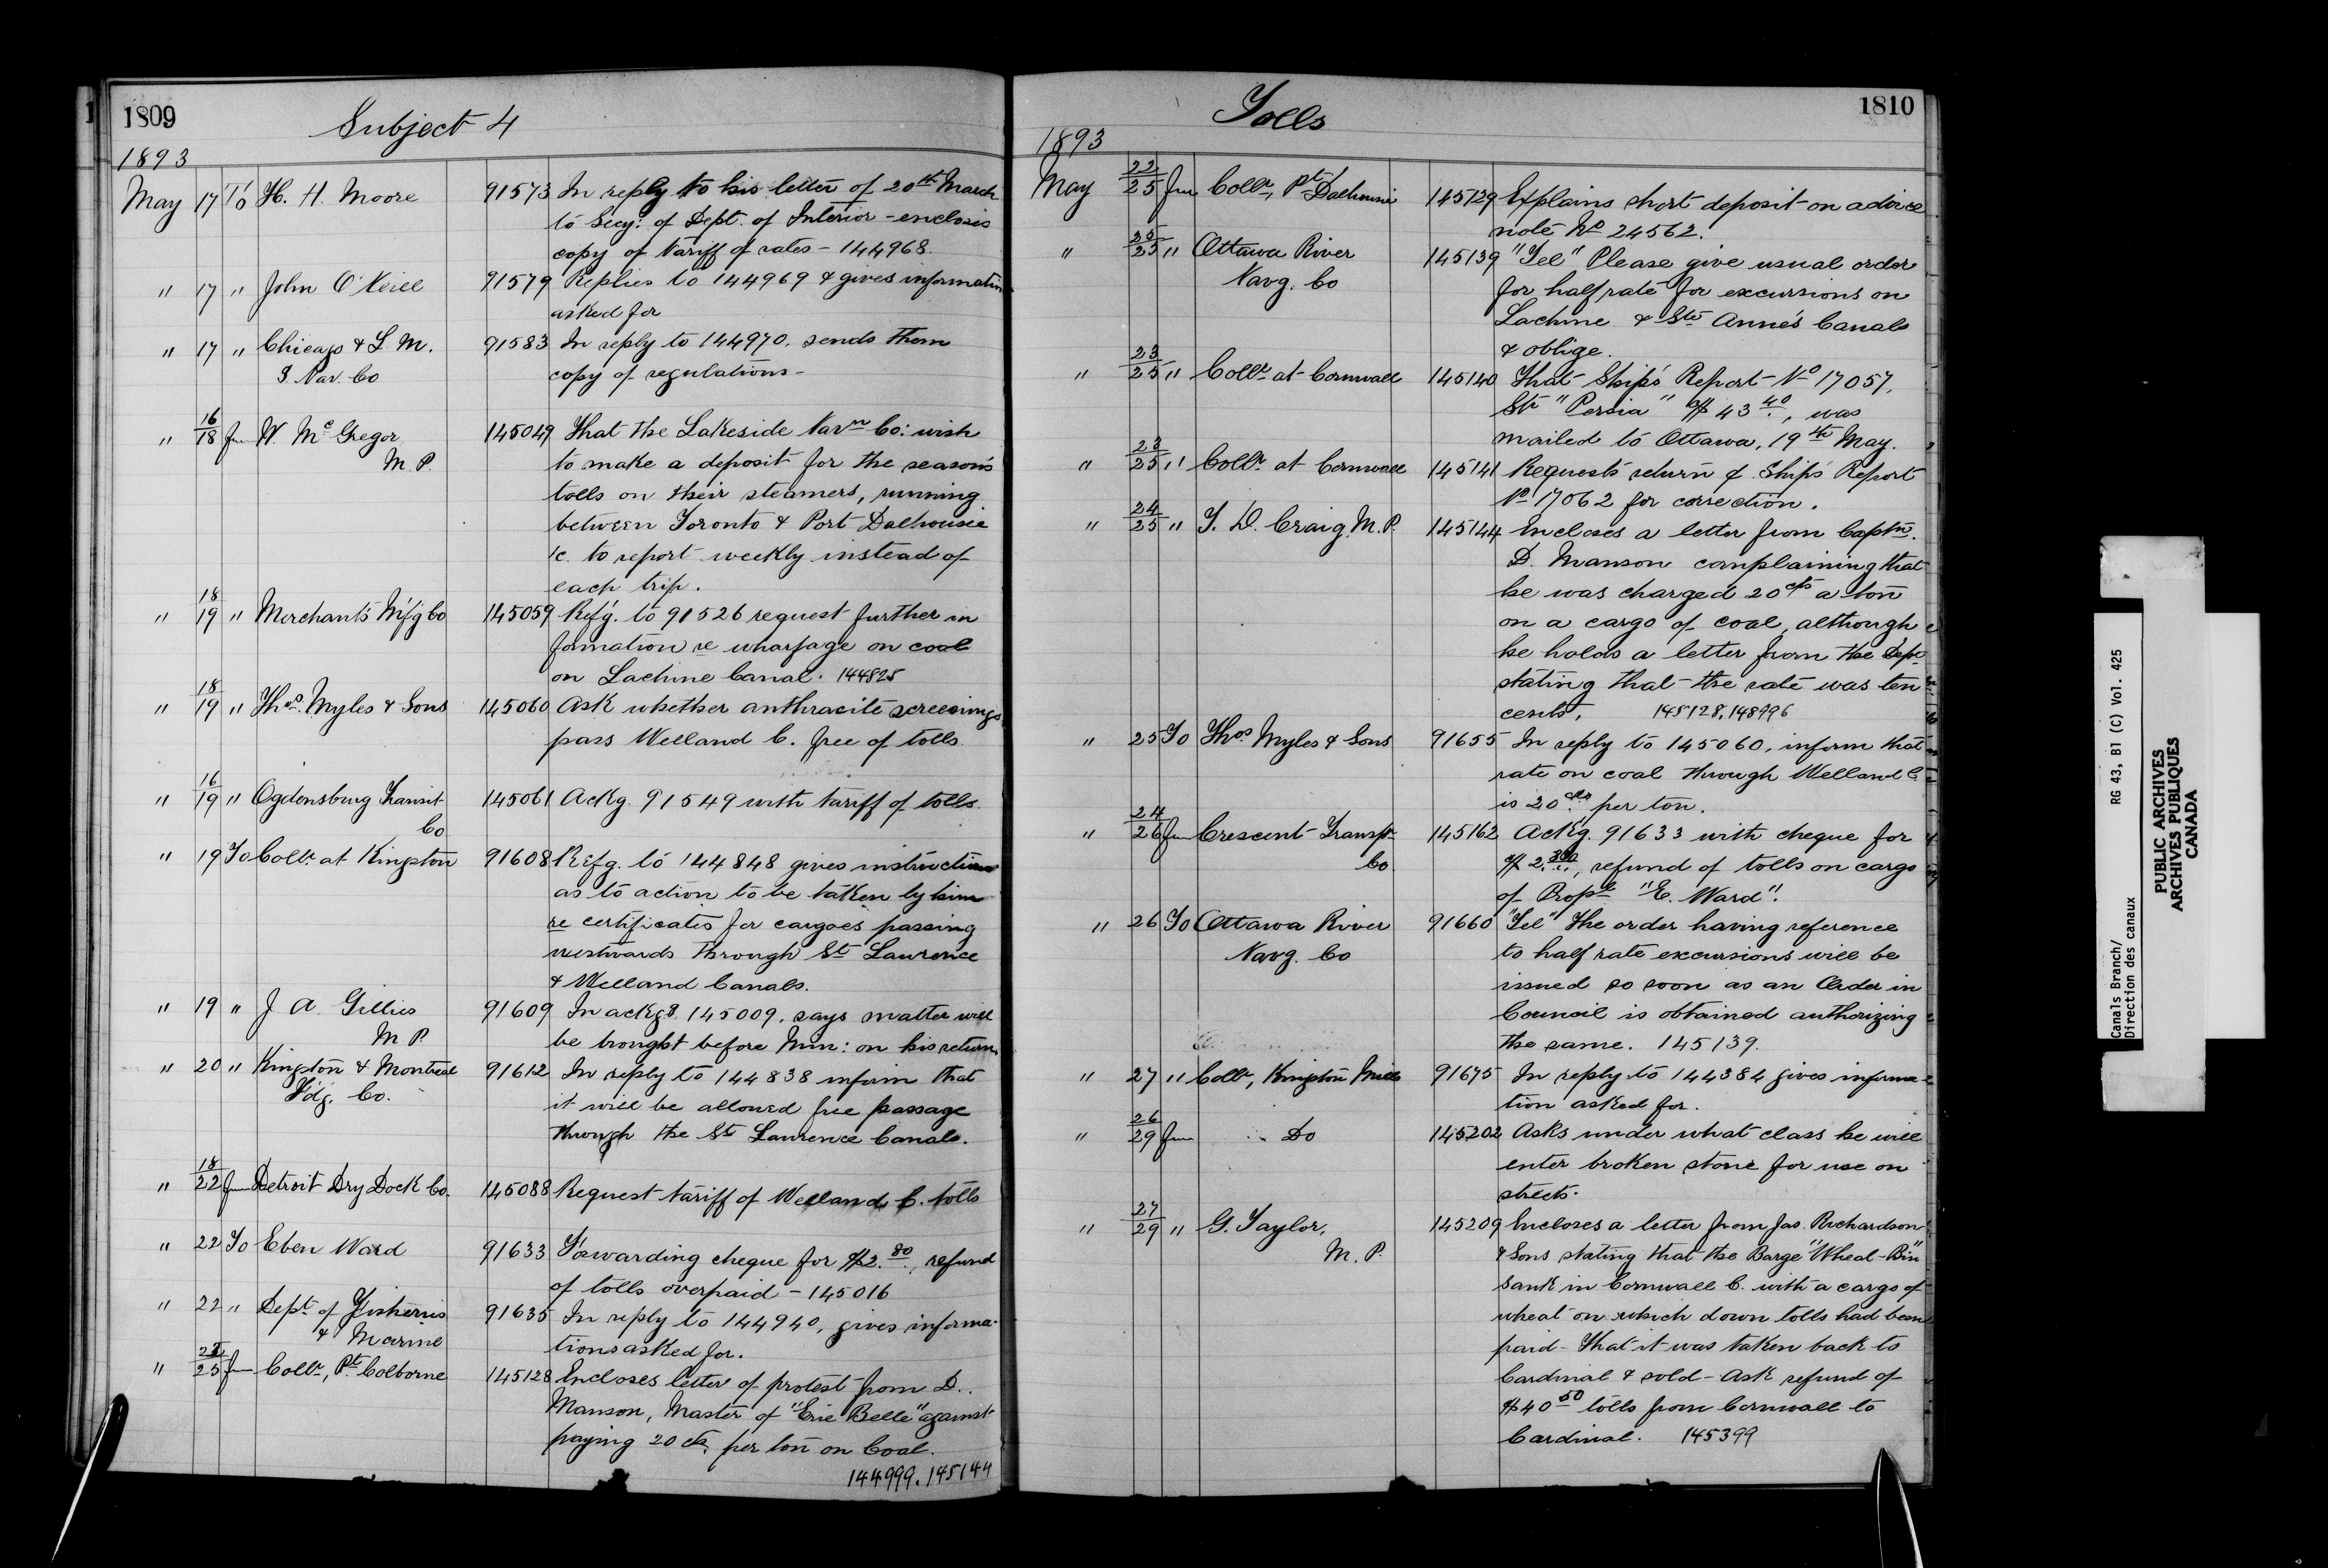 1809
Subject 4
1893
May 17 To H. H. Moore 91573 In reply to his letter of 20th March
to Secy: of Dept. of Interior - encloses
copy of Tariff of rates - 144968.
" 17 " John O'Neill 91579 Replies to 144969 & gives information
asked for
" 17 " Chicago & L. M. 91583 In reply to 144970, sends them
S. Nav. Co copy of regulations -
" 16/18 fm W. McGregor 145049 That the Lakeside Navn Co: wish
M. P. to make a deposit for the season's
tolls on their steamers, running
between Toronto & Port Dalhousie
&c. to report weekly instead of
each trip.
" 18/19 " Merchants M'f'g Co 145059 Ref'g. to 91526 request further in
formation re wharfage on coal
on Lachine Canal. 144825
" 18/19 " Thos. Myles & Sons 145060 Ask whether anthracite screenings
pass Welland C. free of tolls
" 16/19 " Ogdensburg Transit 145061 Ackg. 91549 with tariff of tolls.
Co
" 19 To Collr at Kingston 91608 Refg. to 144848 gives instructions
as to action to be taken by him
re certificates for cargoes passing
westwards through St Lawrence
& Welland Canals.
" 19 " J A Gillies 91609 In ackg 145009, says matter will
M P. be brought before Min: on his return
" 20 " Kingston & Montreal 91612 In reply to 144838 inform that
F'd'g. Co. it will be allowed free passage
through the St Lawrence Canals.
" 18/22 fm Detroit Dry Dock Co. 145088 Request tariff of Welland C. tolls
" 22 To Eben Ward 91633 Forwarding cheque for $2.80, refund
of tolls overpaid - 145016
" 22 " Dept. of Fisheries 91635 In reply to 144940, gives informa-
& Marine tions asked for.
" 25 fm Collr, Pt Colborne 145128 Encloses letter of protest from D.
Manson, Master of "Erie Belle" against
paying 20 cts. per ton on Coal.
144999. 145144
Tolls
1810
1893
May 22/25 fm Collr, Pt Dalhousie 145129 Explains short deposit on advice
note No 24562.
" 25/25 " Ottawa River 145139 "Tel" Please give usual order
Navg. Co for half rate for excursions on
Lachine & Ste Anne's Canals
& oblige.
" 23/25 " Collr at Cornwall 145140 That Ship's Report No 17057,
Str "Persia" $43 40, was
mailed to Ottawa, 19th May.
" 23/25 " Collr at Cornwall 145141 Requests return of Ship's Report
No 17062 for correction.
" 24/25 " T. D. Craig, M. P. 145144 Encloses a letter from Captn.
D. Manson complaining that
he was charged 20 cts a ton
on a cargo of coal, although
he holds a letter from the Dept
stating that the rate was ten
cents. 145128. 148996
" 25 To Thos Myles & Sons 91655 In reply to 145060, inform that
rate on coal through Welland C
is 20 cts per ton.
" 24/26 fm Crescent Transpt. 145162 Ack'g. 91633 with cheque for
Co. $2.80, refund of tolls on cargo
of Propl "E. Ward".
" 26 To Ottawa River 91660 "Tel" The order having reference
Navg. Co to half rate excursions will be
issued so soon as an Order in
Council is obtained authorizing
the same. 145139.
" 27 " Collr, Kingston Mills 91675 In reply to 144384 gives informa-
tion asked for.
" 26/29 fm Do 145202 Asks under what class he will
enter broken stone for use on
streets.
" 27/29 " G. Taylor, 145209 Encloses a letter from Jas. Richardson
M. P. & Sons stating that the Barge "Wheat-Bin"
sank in Cornwall C. with a cargo of
wheat on which down tolls had been
paid - That it was taken back to
Cardinal & sold - Ask refund of
$40 50 tolls from Cornwall to
Cardinal. 145399
Canals Branch/
Direction des canaux
RG 43, B1 (C) Vol. 425
PUBLIC ARCHIVES
ARCHIVES PUBLIQUES
CANADA